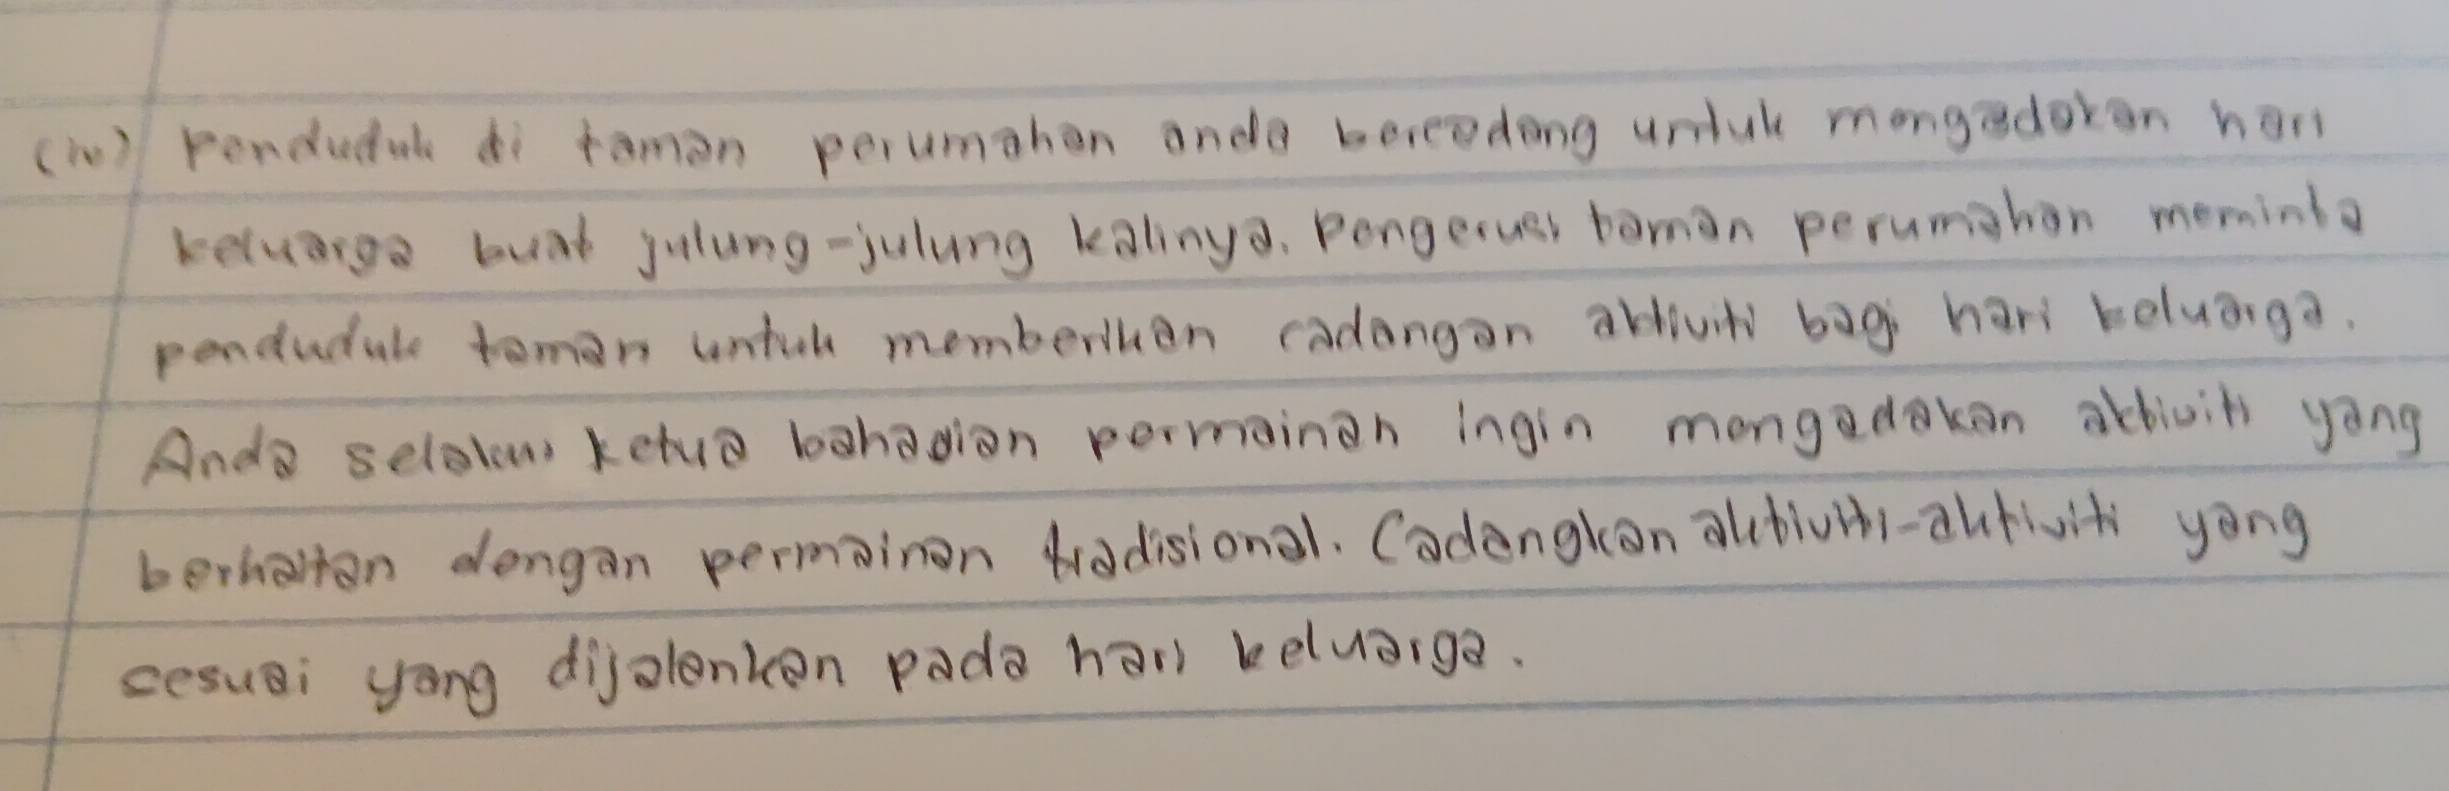 (iv) Penduduk di taman perumahan anda bercadang untuk mengadakan hari
keluarga buat julung-julung kalinya. Pengerusi taman perumahan meminta
penduduk taman untuk memberikan cadangan aktiviti bagi hari keluarga.
Anda selaku ketua bahagian permainan ingin mengadakan aktiviti yang
berkaitan dengan permainan tradisional. Cadangkan aktiviti-aktiviti yang
sesuai yang dijalankan pada hari keluarga.